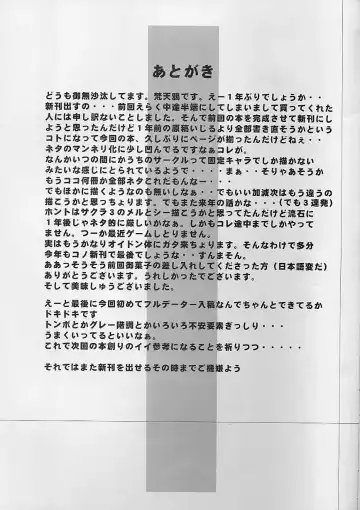 あとがき
どうも御無沙汰してます。梵天鴉です。えー1年ぶりでしょうか・・
新刊出すの・・・前回えらく中途半端にしてしまいまして買ってくれた
人には申し訳ないことしました。そんで前回の本を完成させて新刊にし
ようと思ったんだけど1年前の原稿いじるより全部書き直そうかという
コトになって今回の本、久しぶりにページが揃ったんだけどねぇ・・
ネタのマンネリ化に少し凹んでるですなぁコレが。
なんかいつの間にかうちのサークルって固定キャラでしか描かない
みたいな感じにとられているようで・・・・まぁ・・そりゃあそうか
もうココ何冊か全部ネタこれだもんなー・・・
でもほかに描くようなのも無いしなぁ・・でもいい加減次はもう違うの
描こうかと思っちょります。でもまた来年の話かな・・（でも3連発）
ホントはサクラ3のメルとシー描こうかと思ってたんだけど流石に
1年後じゃネタ的に厳しいかなーと。しかもコレ途中までしかやって
ません。つーか最近ゲームしとりません。
実はもうかなりオイドン体にガタ来ちょります。そんなわけで多分
今年もコノ新刊で最後でしょうな・・すんまそん。
ああっそうそう前回御菓子の差し入れしてくださった方（日本語変だ）
ありがとうございます。うれしかったでございます。
そして美味しゅうございました。
えーと最後に今回初めてフルデーター入稿なんでちゃんとできてるか
ドキドキです
トンボとかグレー階調とかいろいろ不安要素ぎっしり・・・
うまくいってるといいなぁ。
これで次回の本創りのイイ参考になることを祈りつつ・・・・・
それではまた新刊を出せるその時までご機嫌よう